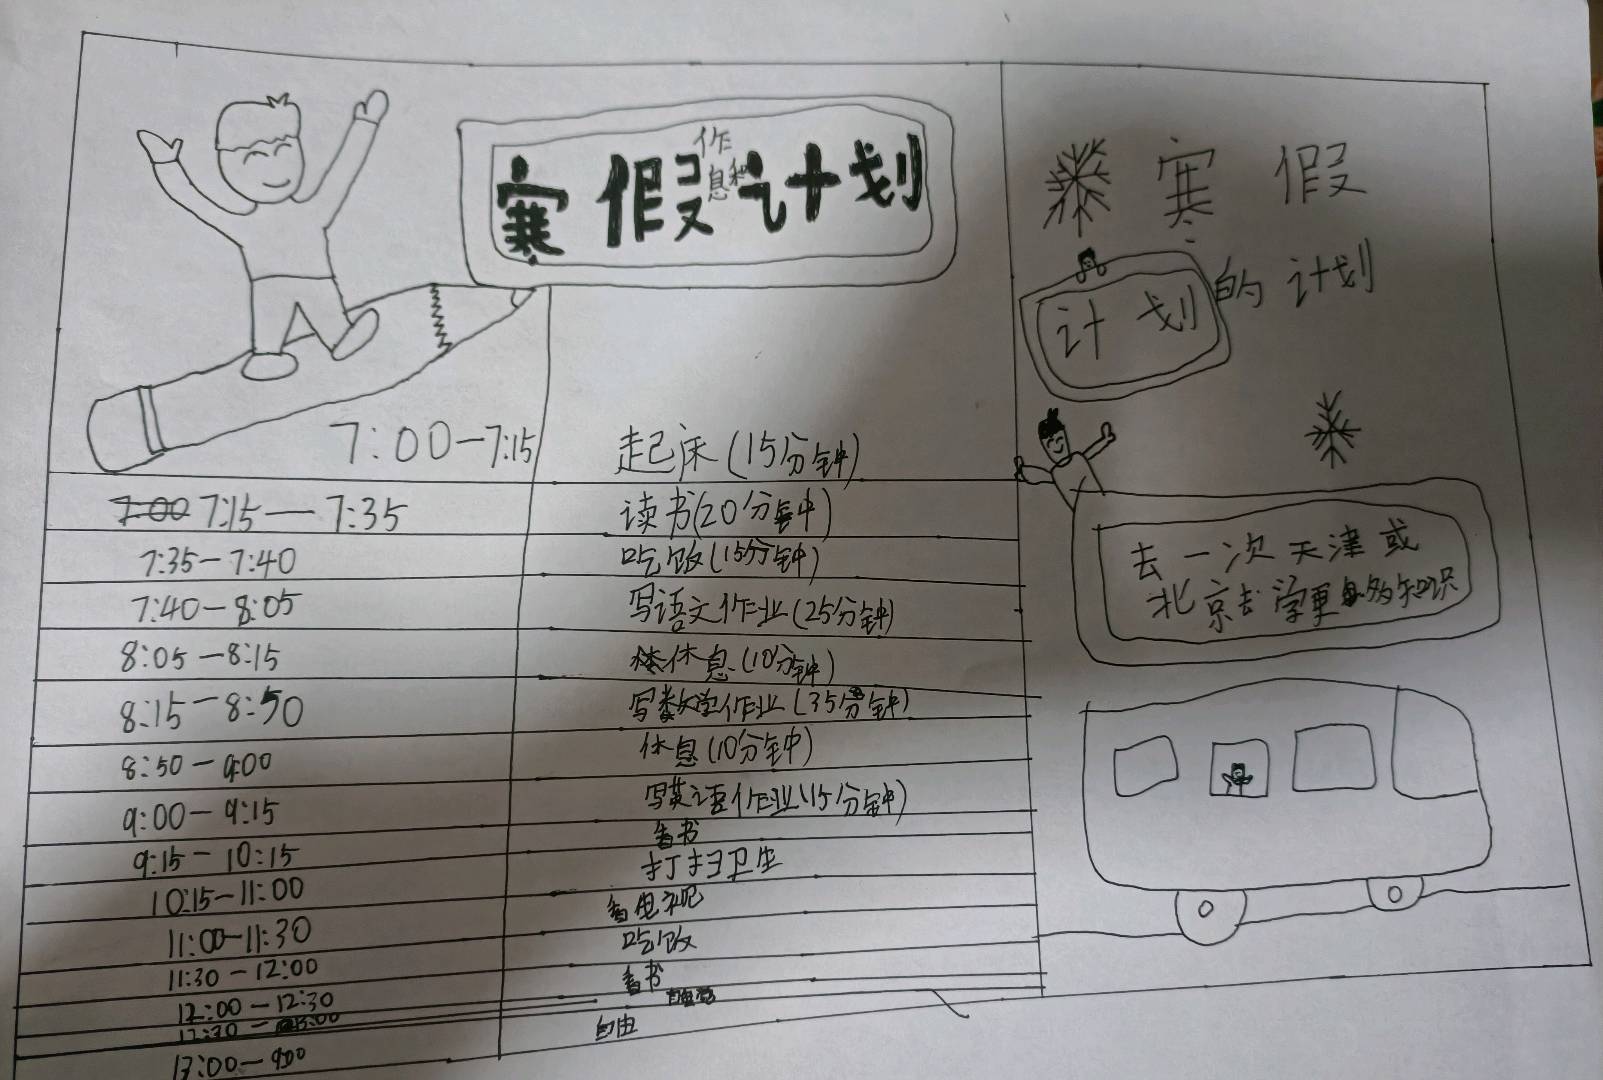 寒假作息和计划
7:00—7:15 起床(15分钟)
7:00 7:15—7:35 读书(20分钟)
7:35—7:40 吃饭(15分钟)
7:40—8:05 写语文作业(25分钟)
8:05—8:15 休息(10分钟)
8:15—8:50 写数学作业(35分钟)
8:50—9:00 休息(10分钟)
9:00—9:15 写英语作业(15分钟)
9:15—10:15 看书
10:15—11:00 打扫卫生
11:00—11:30 看电视
11:30—12:00 吃饭
12:00—12:30 看书
12:30—13:00
13:00—9:00 自由
寒假
计划的计划
去一次天津或
北京去学更多知识